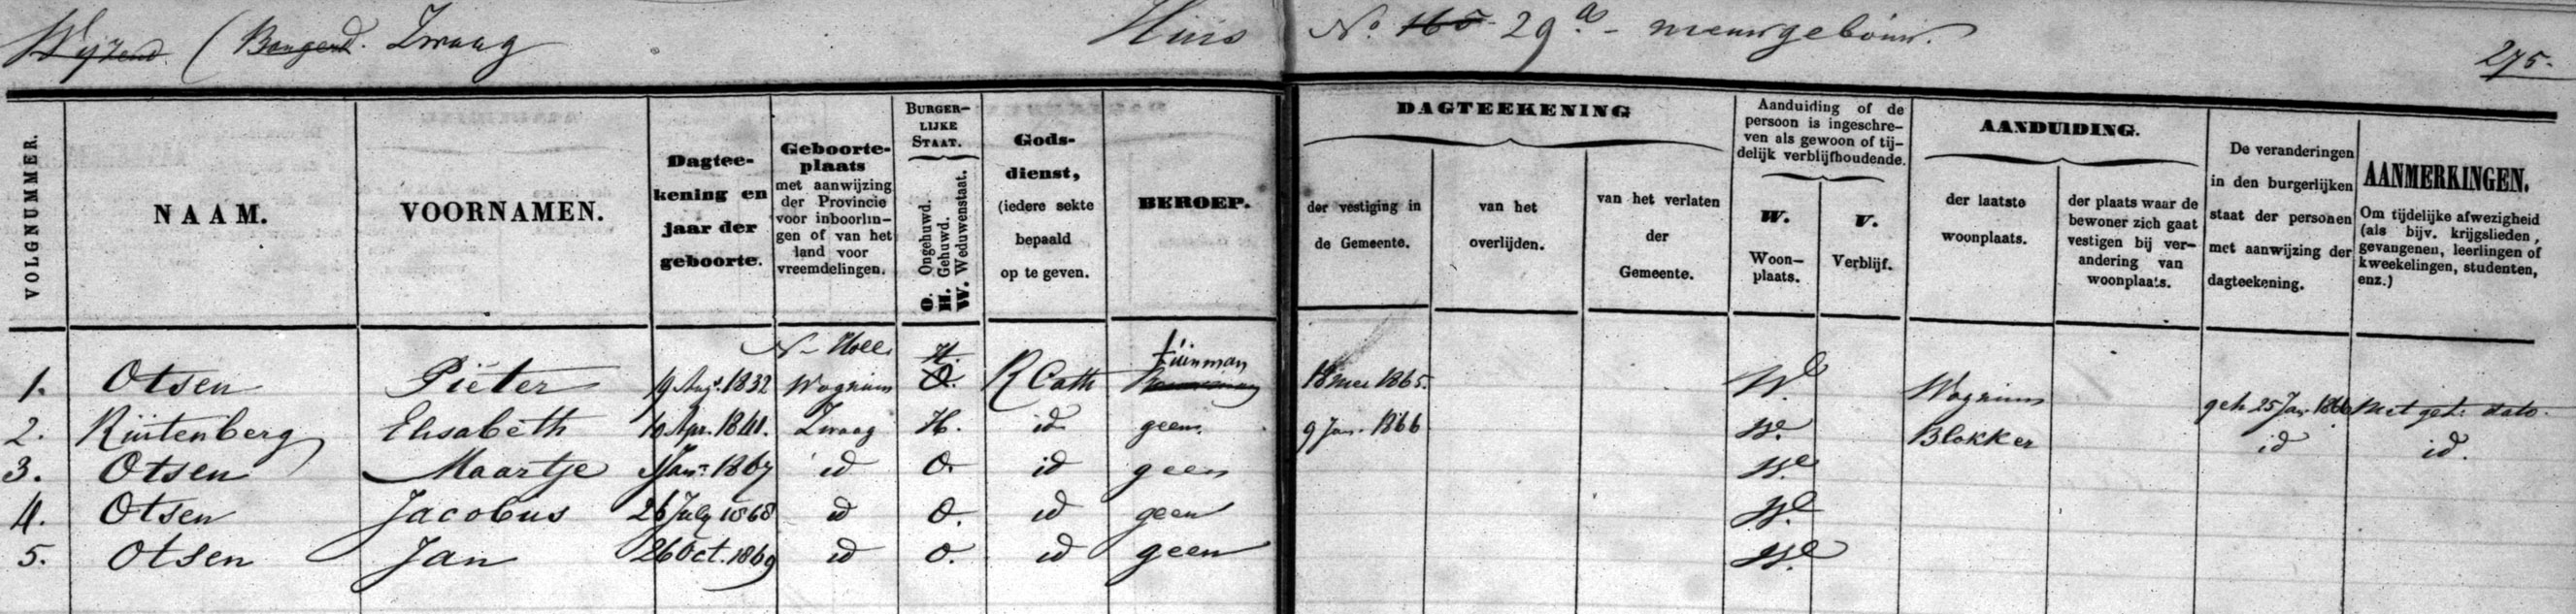 Wijzend. (Bangerd. Zwaag Huis No. 165 29a - nieuwgebouw.
275.
VOLGNUMMER.
NAAM.
VOORNAMEN.
Dagtee-
kening en
jaar der
geboorte.
Geboorte-
plaats
met aanwijzing
der Provincie
voor inboorlin-
gen of van het
land voor
vreemdelingen.
BURGER-
LIJKE
STAAT.
O. Ongehuwd.
H. Gehuwd.
W. Weduwenstaat.
Gods-
dienst,
(iedere sekte
bepaald
op te geven.
BEROEP.
DAGTEEKENING
der vestiging in
de Gemeente.
van het
overlijden.
van het verlaten
der
Gemeente.
Aanduiding of de
persoon is ingeschre-
ven als gewoon of tij-
delijk verblijfhoudende.
W.
Woon-
plaats.
V.
Verblijf.
AANDUIDING.
der laatste
woonplaats.
der plaats waar de
bewoner zich gaat
vestigen bij ver-
andering van
woonplaats.
De veranderingen
in den burgerlijken
staat der personen
met aanwijzing der
dagteekening.
AANMERKINGEN.
Om tijdelijke afwezigheid
(als bijv. krijgslieden,
gevangenen, leerlingen of
kweekelingen, studenten,
enz.)
N- Holl. H. tuinman
1. Otsen Pieter 19 Aug. 1832 Wognum O. R Cath 18 mei 1865. We Wognum geh 25 Jan. 1866 Met geh. dato.
2. Ruitenberg Elisabeth 10 Apr. 1841. Zwaag H. id geen. 9 Jan. 1866 We Blokker id id.
3. Otsen Maartje Jan. 1867 id O. id geen We
4. Otsen Jacobus 26 July 1868 id O. id geen We
5. Otsen Jan 26 Oct. 1869 id O. id geen We